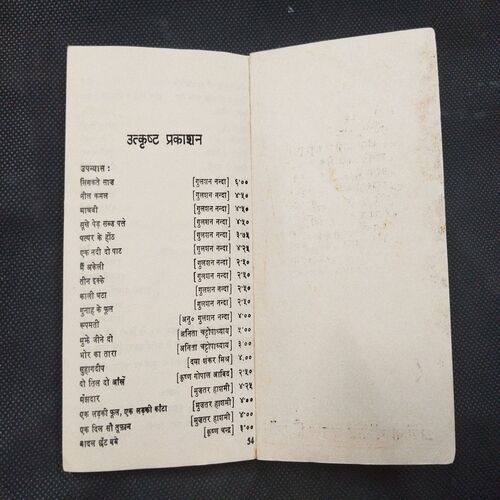 उत्कृष्ट प्रकाशन
उपन्यास :
सिसकते साज [गुलशन नन्दा] ६·००
नील कमल [गुलशन नन्दा] ४·५०
माधवी [गुलशन नन्दा] ४·५०
सूखे पेड़ सब्ज पत्ते [गुलशन नन्दा] ४·५०
पत्थर के होंठ [गुलशन नन्दा] ३·७५
एक नदी दो पाट [गुलशन नन्दा] ४·२५
मैं अकेली [गुलशन नन्दा] २·५०
तीन इक्के [गुलशन नन्दा] २·५०
काली घटा [गुलशन नन्दा] २·५०
गुनाह के फूल [गुलशन नन्दा] २·५०
रूपमती [अनु० गुलशन नन्दा] ४·००
मुझे जीने दो [अनिता चट्टोपाध्याय] ५·००
भोर का तारा [अनिता चट्टोपाध्याय] ३·००
सुहागदीप [दया शंकर मिश्र] ४·००
दो तिल दो आँखें [कृष्ण गोपाल आबिद] २·५०
मँझदार [मुज़तर हाशमी] ४·२५
एक लड़की फूल, एक लड़की काँटा [मुज़तर हाशमी] ४·००
एक दिल सौ तूफ़ान [मुज़तर हाशमी] ४·००
बादल छँट गये [कृष्ण चन्द्र] ३·००
54